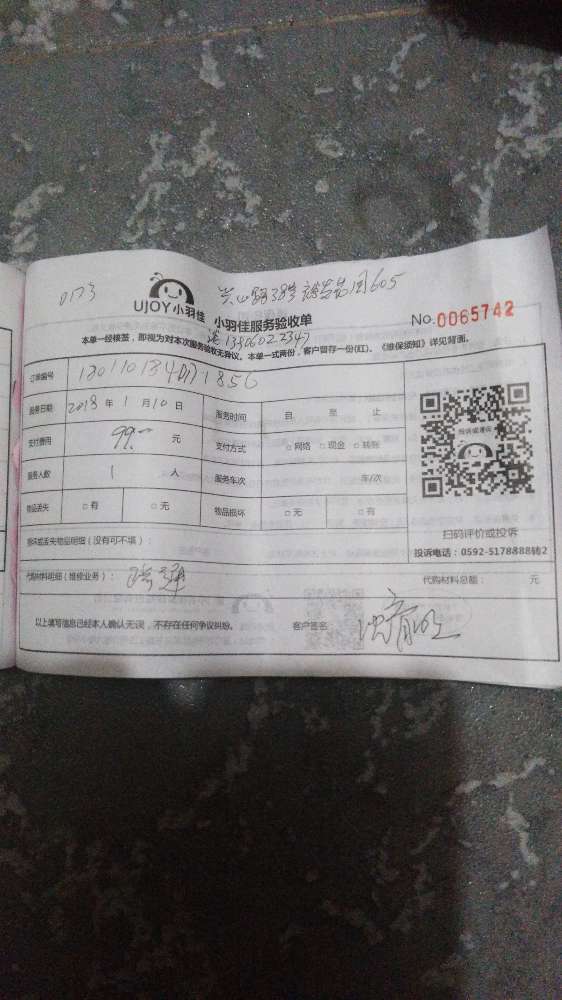 兴山路38号 605
UJOY小羽佳
小羽佳服务验收单
No.0065742
13960222347
本单一经接签，即视为对本次服务验收无异议。本单一式两份，客户留存一份(红)。《维保须知》详见背面。
订单编号
服务日期 2018 年 1 月 10 日 服务时间 自 至 止
支付费用 99.00 元 支付方式 □网络 □现金 □转账
服务人数 1 人 服务车次 车/次
物品丢失 □有 □无 物品损坏 □无 □有
投诉或建议
扫码评价或投诉
投诉电话：0592-5178888转2
损坏或丢失物品明细（没有可不填）：
代购材料明细（维修业务）：
代购材料总额： 元
以上填写信息已经本人确认无误，不存在任何争议纠纷。 客户签名：